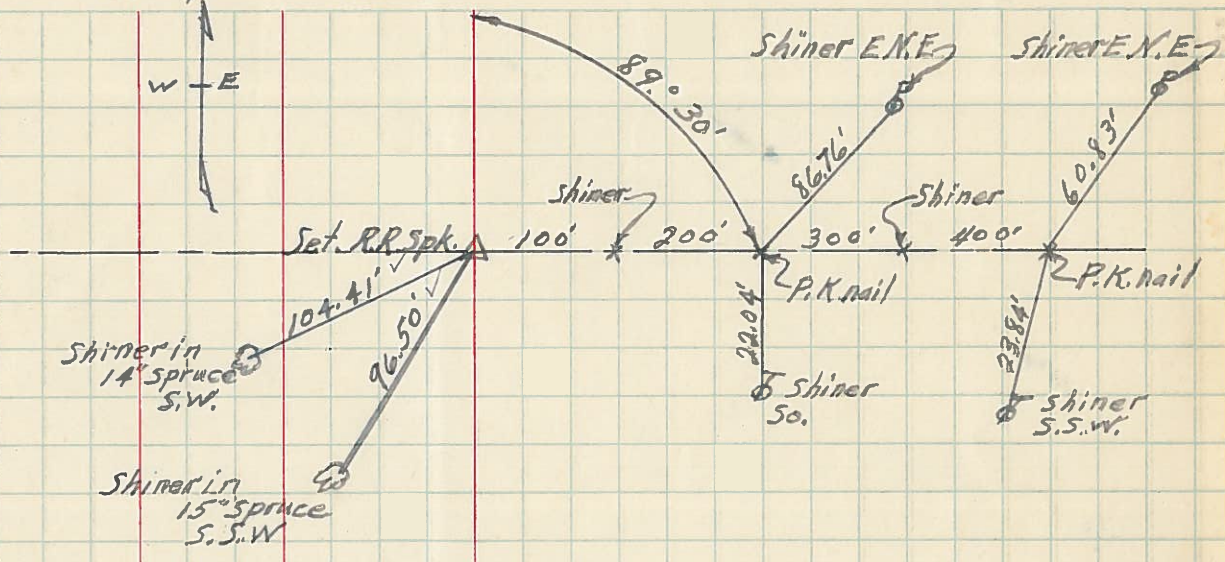 W E
89.° 30'
Shiner E.N.E
Shiner E.N.E
86.76'
60.83'
shiner
Shiner
Set. R.R. Spk.
100'
200'
300'
400'
P.K. nail
P.K. nail
104.41' ✓
96.50' ✓
22.04'
23.84'
Shiner in
14" Spruce
S.W.
Shiner
So.
Shiner
S.S.W.
Shiner in
15" Spruce
S.S.W